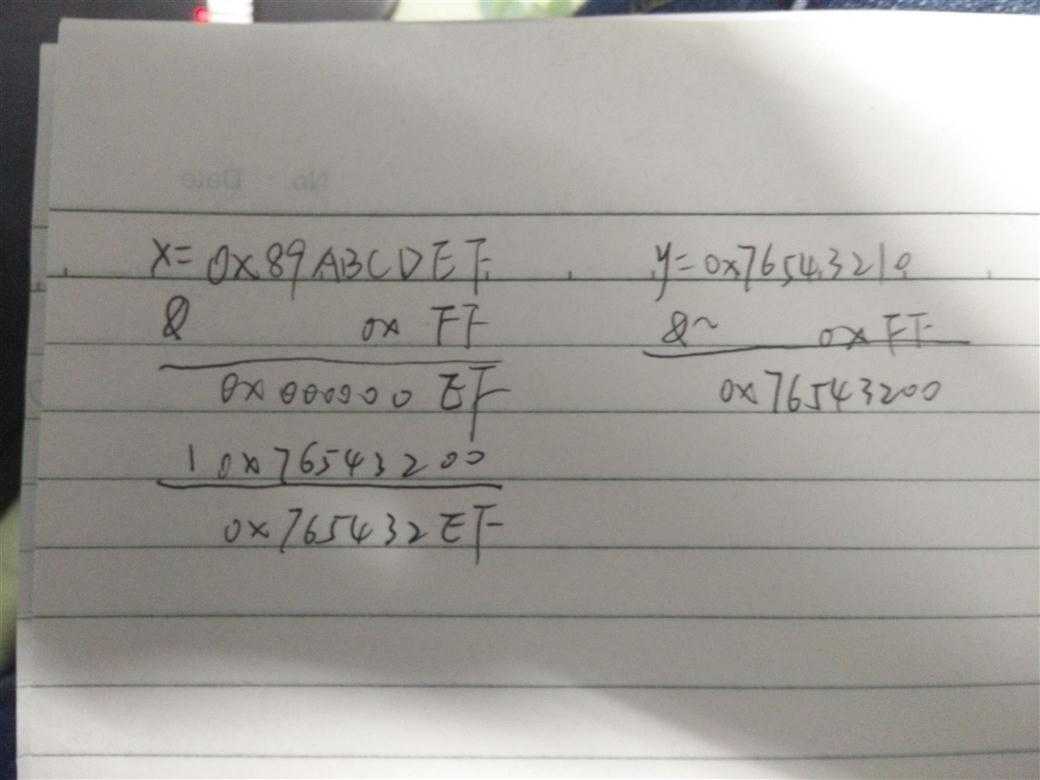 No. Date
x=0x89ABCDEF
& 0x FF
0x000000EF
| 0x76543200
0x765432EF
y=0x76543210
&~ 0xFF
0x76543200